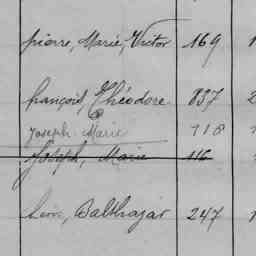 pierre, Marie, Victor 169 1
françois, Théodore 837 2
Joseph Marie 118
Joseph, Marie 116
Léon, Balthazar 247 1